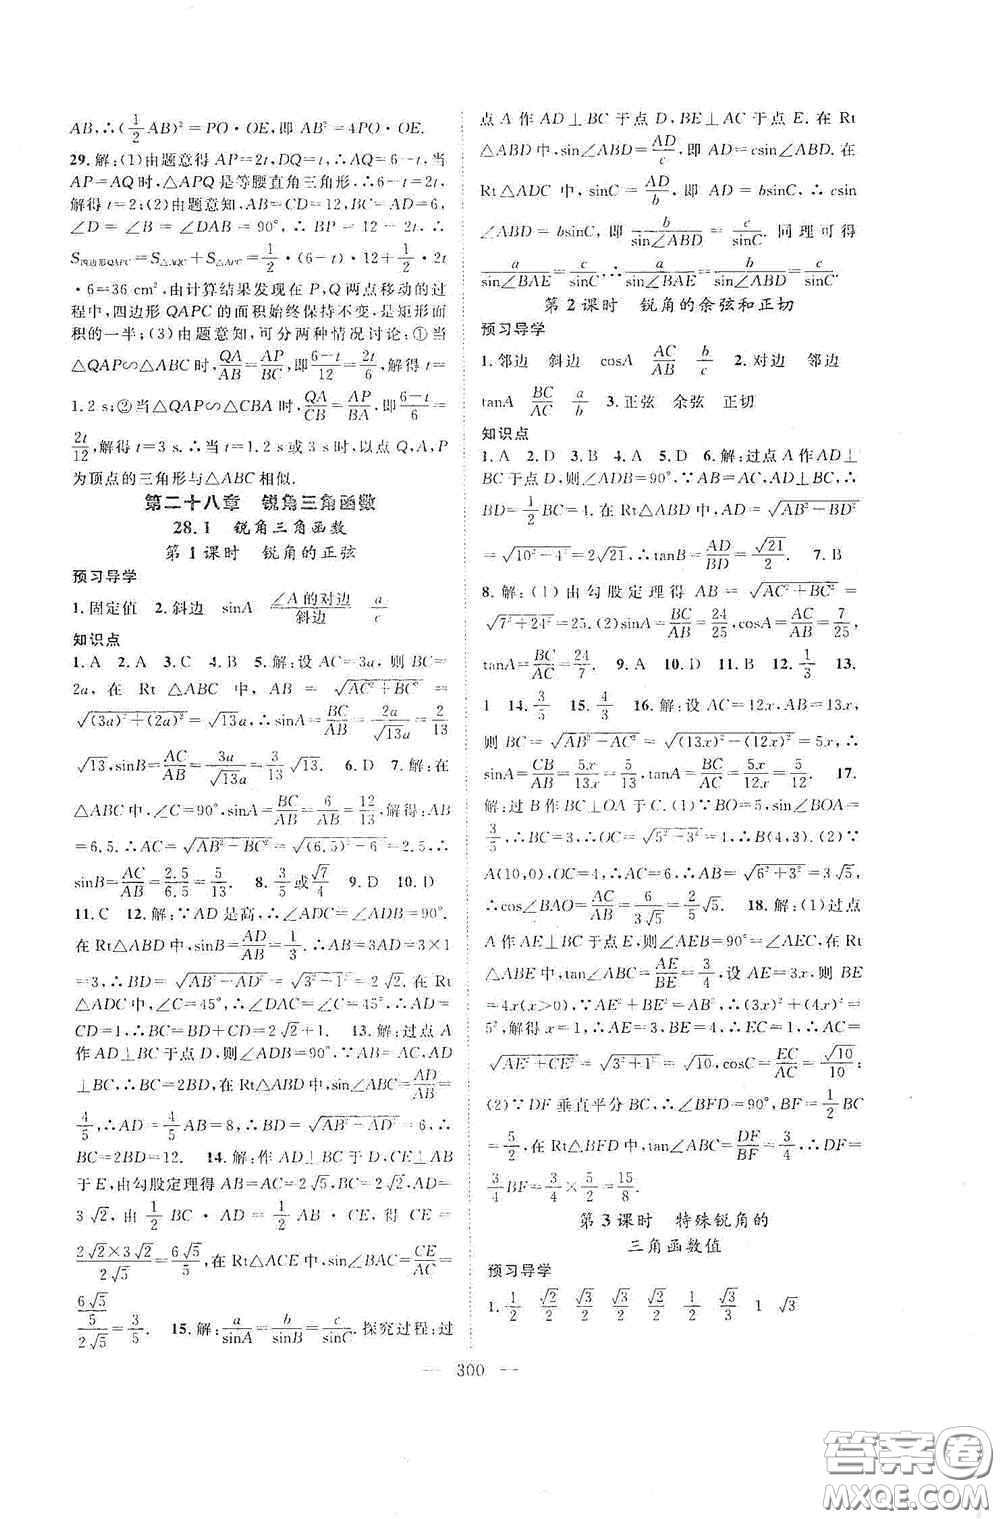 AB,∴(1/2 AB)²=PO·OE,即 AB²=4PO·OE.
29.解:(1)由题意得 AP=2t,DQ=t,∴AQ=6-t,当
AP=AQ 时,△APQ 是等腰直角三角形,∴6-t=2t,
解得 t=2;(2)由题意知,AB=CD=12,BC=AD=6,
∠D=∠B=∠DAB=90°,∴BP=12-2t,∴
S四边形QAPC=S△AQC+S△APC=1/2·(6-t)·12+1/2·2t
·6=36 cm²,由计算结果发现在 P,Q 两点移动的过
程中,四边形 QAPC 的面积始终保持不变,是矩形面
积的一半;(3)由题意知,可分两种情况讨论:①当
△QAP∽△ABC 时,QA/AB=AP/BC,即(6-t)/12=2t/6,解得 t=
1.2 s;②当△QAP∽△CBA 时,QA/CB=AP/BA,即(6-t)/6=
2t/12,解得 t=3 s.∴当 t=1.2 s或 3 s时,以点 Q,A,P
为顶点的三角形与△ABC 相似.
第二十八章 锐角三角函数
28.1 锐角三角函数
第1课时 锐角的正弦
预习导学
1.固定值 2.斜边 sinA ∠A的对边/斜边 a/c
知识点
1.A 2.A 3.C 4.B 5.解:设 AC=3a,则 BC=
2a,在 Rt△ABC 中,AB=√(AC²+BC²)=
√((3a)²+(2a)²)=√13a,∴sinA=BC/AB=2a/√13a=2/13
√13,sinB=AC/AB=3a/√13a=3/13√13. 6.D 7.解:在
△ABC 中,∠C=90°,sinA=BC/AB=6/AB=12/13,解得:AB
=6.5.∴AC=√(AB²-BC²)=√((6.5)²-6²)=2.5,∴
sinB=AC/AB=2.5/6.5=5/13. 8.3/5或√7/4 9.D 10.D
11.C 12.解:∵AD 是高,∴∠ADC=∠ADB=90°.
在 Rt△ABD 中,sinB=AD/AB=1/3,∴AB=3AD=3×1
=3,∴BD=√(AB²-AD²)=√(3²-1²)=2√2.在 Rt
△ADC 中,∠C=45°,∴∠DAC=∠C=45°,∴AD=
CD=1,∴BC=BD+CD=2√2+1. 13.解:过点 A
作 AD⊥BC 于点 D,则∠ADB=90°,∵AB=AC,AD
⊥BC,∴BC=2BD,在 Rt△ABD 中,sin∠ABC=AD/AB=
4/5,∴AD=4/5AB=8,∴BD=√(AB²-AD²)=6,∴
BC=2BD=12. 14.解:作 AD⊥BC 于 D,CE⊥AB
于 E,由勾股定理得 AB=AC=2√5,BC=2√2,AD=
3√2,由 1/2 BC·AD=1/2 AB·CE,得 CE=
(2√2×3√2)/2√5=6√5/5,在 Rt△ACE 中,sin∠BAC=CE/AC=
(6√5/5)/2√5=3/5. 15.解:a/sinA=b/sinB=c/sinC.探究过程:过
点 A 作 AD⊥BC 于点 D,BE⊥AC 于点 E.在 Rt
△ABD 中,sin∠ABD=AD/c,即 AD=csin∠ABD,在
Rt△ADC 中,sinC=AD/b,即 AD=bsinC,∴csin
∠ABD=bsinC,即 b/sin∠ABD=c/sinC.同理可得
a/sin∠BAE=c/sinC.∴a/sin∠BAE=b/sin∠ABD=c/sinC.
第2课时 锐角的余弦和正切
预习导学
1.邻边 斜边 cosA AC/AB b/c 2.对边 邻边
tanA BC/AC a/b 3.正弦 余弦 正切
知识点
1.A 2.D 3.B 4.A 5.B 6.解:过点 A 作 AD⊥
BC 于点 D,则∠ADB=90°,∵AB=AC=10,∴
BD=1/2BC=1/2×8=4,∴AD=√(AB²-BD²)=
√(10²-4²)=2√21,∴tanB=AD/BD=√21/2. 7.B
8.解:(1)由勾股定理得 AB=√(AC²+BC²)=
√(7²+24²)=25.(2)sinA=BC/AB=24/25,cosA=AC/AB=7/25,
tanA=BC/AC=24/7. 9.A 10.D 11.B 12.1/3 13.
1 14.3/5 15.4/3 16.解:设 AC=12x,AB=13x,
则 BC=√(AB²-AC²)=√((13x)²-(12x)²)=5x,∴
sinA=CB/AB=5x/13x=5/13,tanA=BC/AC=5x/12x=5/12. 17.
解:过 B 作 BC⊥OA 于 C.(1)∵BO=5,sin∠BOA=
3/5,∴BC=3,∴OC=√(5²-3²)=4,∴B(4,3).(2)∵
A(10,0),∴OA=10,AC=6,∴AB=√(6²+3²)=3√5,
∴cos∠BAO=AC/AB=6/3√5=2/5√5. 18.解:(1)过点
A 作 AE⊥BC 于点 E,则∠AEB=90°=∠AEC,在 Rt
△ABE 中,tan∠ABC=AE/BE=3/4,设 AE=3x,则 BE
=4x(x>0),∵AE²+BE²=AB²,∴(3x)²+(4x)²=
5²,解得 x=1,∴AE=3,BE=4,∴EC=1,∴AC=
√(AE²+CE²)=√(3²+1²)=√10,cosC=EC/AC=√10/10;
(2)∵DF 垂直平分 BC,∴∠BFD=90°,BF=1/2BC=
5/2,在 Rt△BFD 中,tan∠ABC=DF/BF=3/4,∴DF=
3/4BF=3/4×5/2=15/8.
第3课时 特殊锐角的
三角函数值
预习导学
1.1/2 √2/2 √3/2 √3/2 √2/2 1/2 √3/3 1 √3
— 300 —
答案圈
MXQE.COM